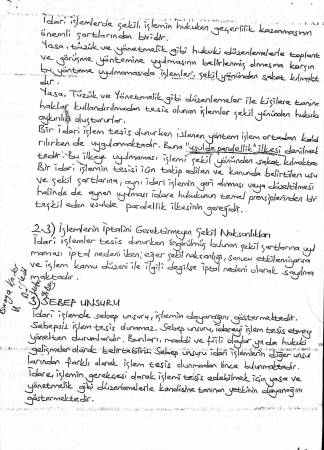 İdari işlemlerde şekil, işlemin hukuken geçerlilik kazanmasının
önemli şartlarından biridir.
Yasa, tüzük ve yönetmelik gibi hukuki düzenlemelerle toplantı
ve görüşme yöntemine uyulmasını belirlenmiş olmasına karşın
bu yönteme uyulmamasıda işlemler, şekil yönünden sakat kılmakta
dır.
Yasa, Tüzük ve Yönetmelik gibi düzenlemeler ile kişilere tanınan
haklar kullandırılmadan tesis olunan işlemler şekil yönünden hukuka
aykırılık oluştururlar.
Bir idari işlem tesis olunurken izlenen yöntem işlem ortadan kaldı
rılırken de uygulanmaktadır. Buna "usulde paralellik" ilkesi denilmek
tedir. bu ilkeye uyulmaması işlemi şekil yönünden sakat kılmaktadır
Bir idari işlemin tesisi için takip edilen ve kanunda belirtilen usul
ve şekil şartlarına, aynı idari işlemin geri alınması veya düzeltilmesi
halinde de aynen uyulması idare hukukunun temel prensiplerinden bir
teşkil eden usulde paralellik ilkesinin gereğidir.
2.3) İşlemlerin İptalini Gerektirmeyen Şekil Noksanlıkları
İdari işlemler tesis olunurken öngörülmüş bulunan şekil şartlarına uyul
maması iptal nedeni iken; eğer şekil noksanlığı, sonucu etkilemiyorsa
ve işlem kamu düzeni ile ilgili değilse iptal nedeni olarak sayılma
maktadır.
3) SEBEP UNSURU
İdari işlemde sebep unsuru, işlemin dayanağını göstermektedir.
Sebepsiz işlem tesis olunamaz. Sebep unsuru, idareyi işlem tesis etmeye
yönelten durumlardır. Bunları, maddi ve fiili olaylar ya da hukuki
gelişmeler olarak belirtebiliriz. Sebep unsuru idari işlemlerin diğer unsur
larından farklı olarak işlem tesis olunmadan önce bulunmaktadır.
İdare, işlemin gerekçesi olarak işlemi tesis edebilmek için yasa ve
yönetmelik gibi düzenlemelerle kendisine tanınan yetkinin dayanağını
göstermektedir.